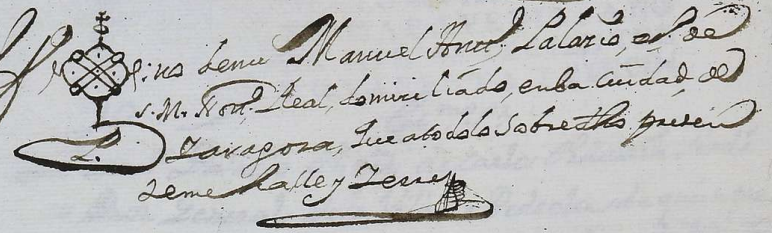 Sig no de mi Manuel Antt.º Lalario, es.no de
S. M. Nott.º Real, domiciliado, en la Ciudad de
Zaragoza, que a todo lo sobredho, presen
te me halle y Zerre